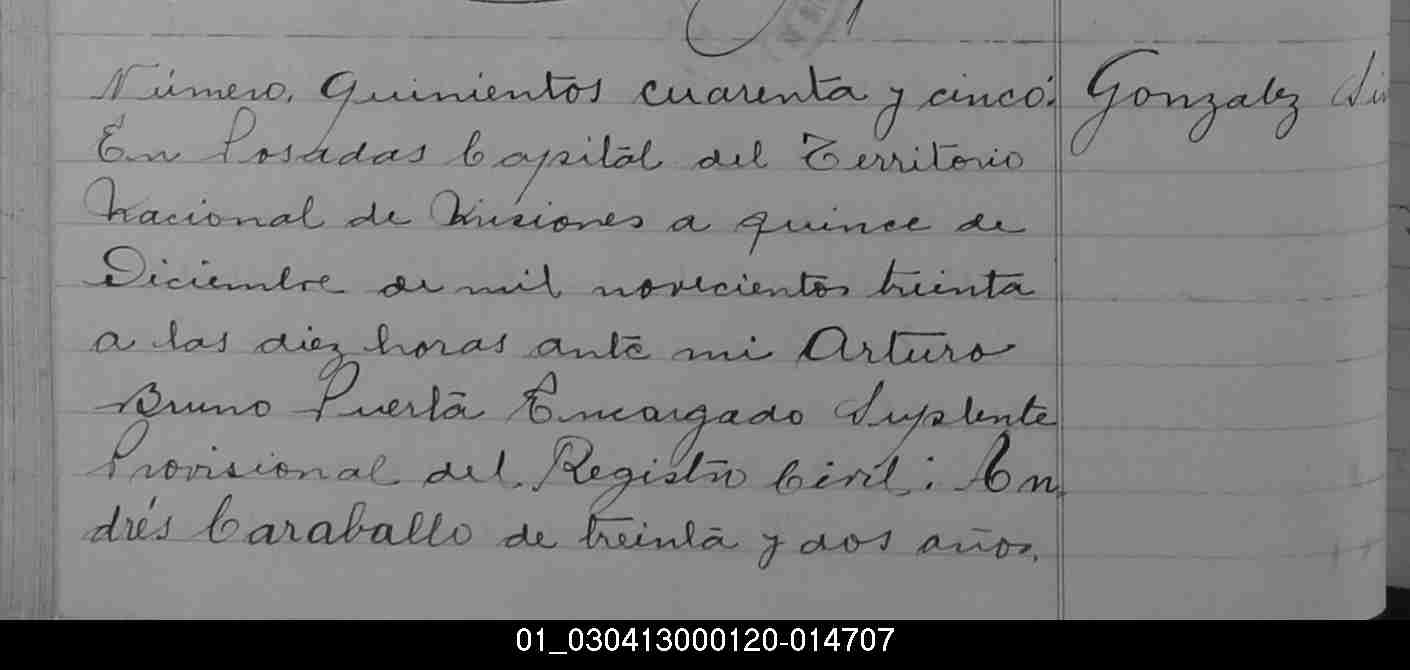 Número. Quinientos cuarenta y cinco. Gonzalez
En Posadas Capital del Territorio
Nacional de Misiones a quince de
Diciembre de mil novecientos treinta
a las diez horas ante mi Arturo
Bruno Puerta Encargado Suplente
Provisional del Registro Civil: An
drés Caraballo de treinta y dos años.
01_030413000120-014707